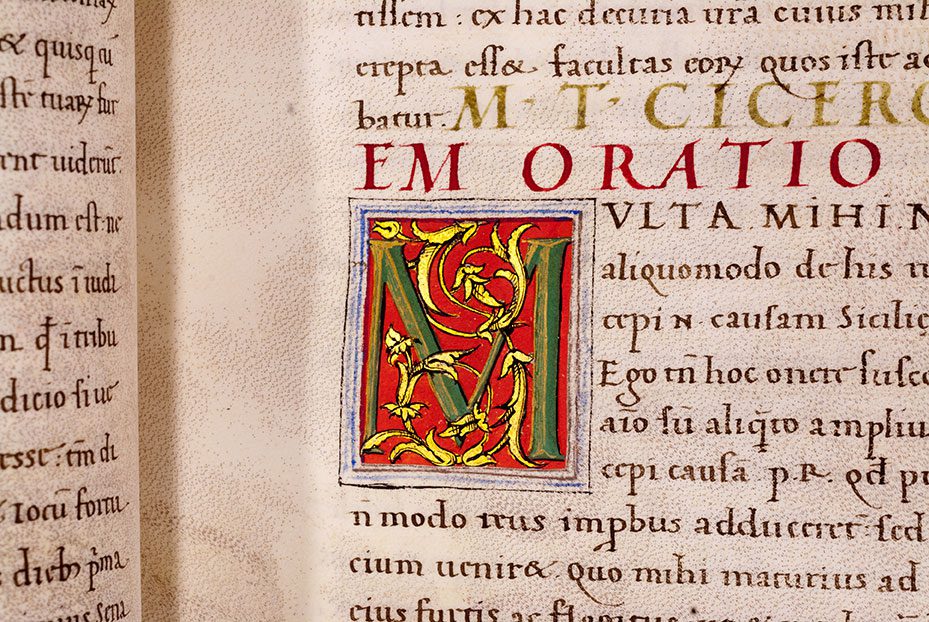 & quisq cū
stē tuaꝝ fur
ernt uiderūt
ndum est ne
uctus ī iudi
n qđ ī tribu
dicio siue
esse: tm̄ di
locū fortu
dieb p̄ma
tissem: ex hac decuria ur̄a cuius mih
erepta ess& facultas eoꝝ quos iste ac
batur. M·T·CICERO
EM ORATIO
MVLTA MIHI N
aliquomodo de his
cepi n causam Sicilię
Ego tn̄ hoc onere susce
aīo sū aliq̄to ampliu
cepi causā p.R. qđ pr
n̄ modo reus impbus adduceret: sed
cium uenir&. quo mihi maturius ad
eius furtis ac flagitiis